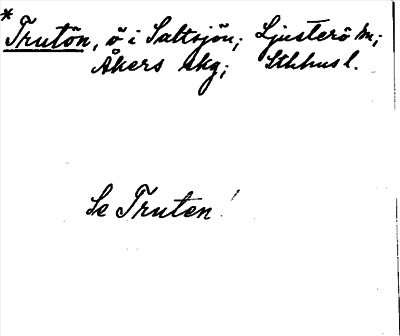 * Trutön, ö i Saltsjön; Ljusterö sn;
Åkers skg; Sthlms l.
Se Truten!